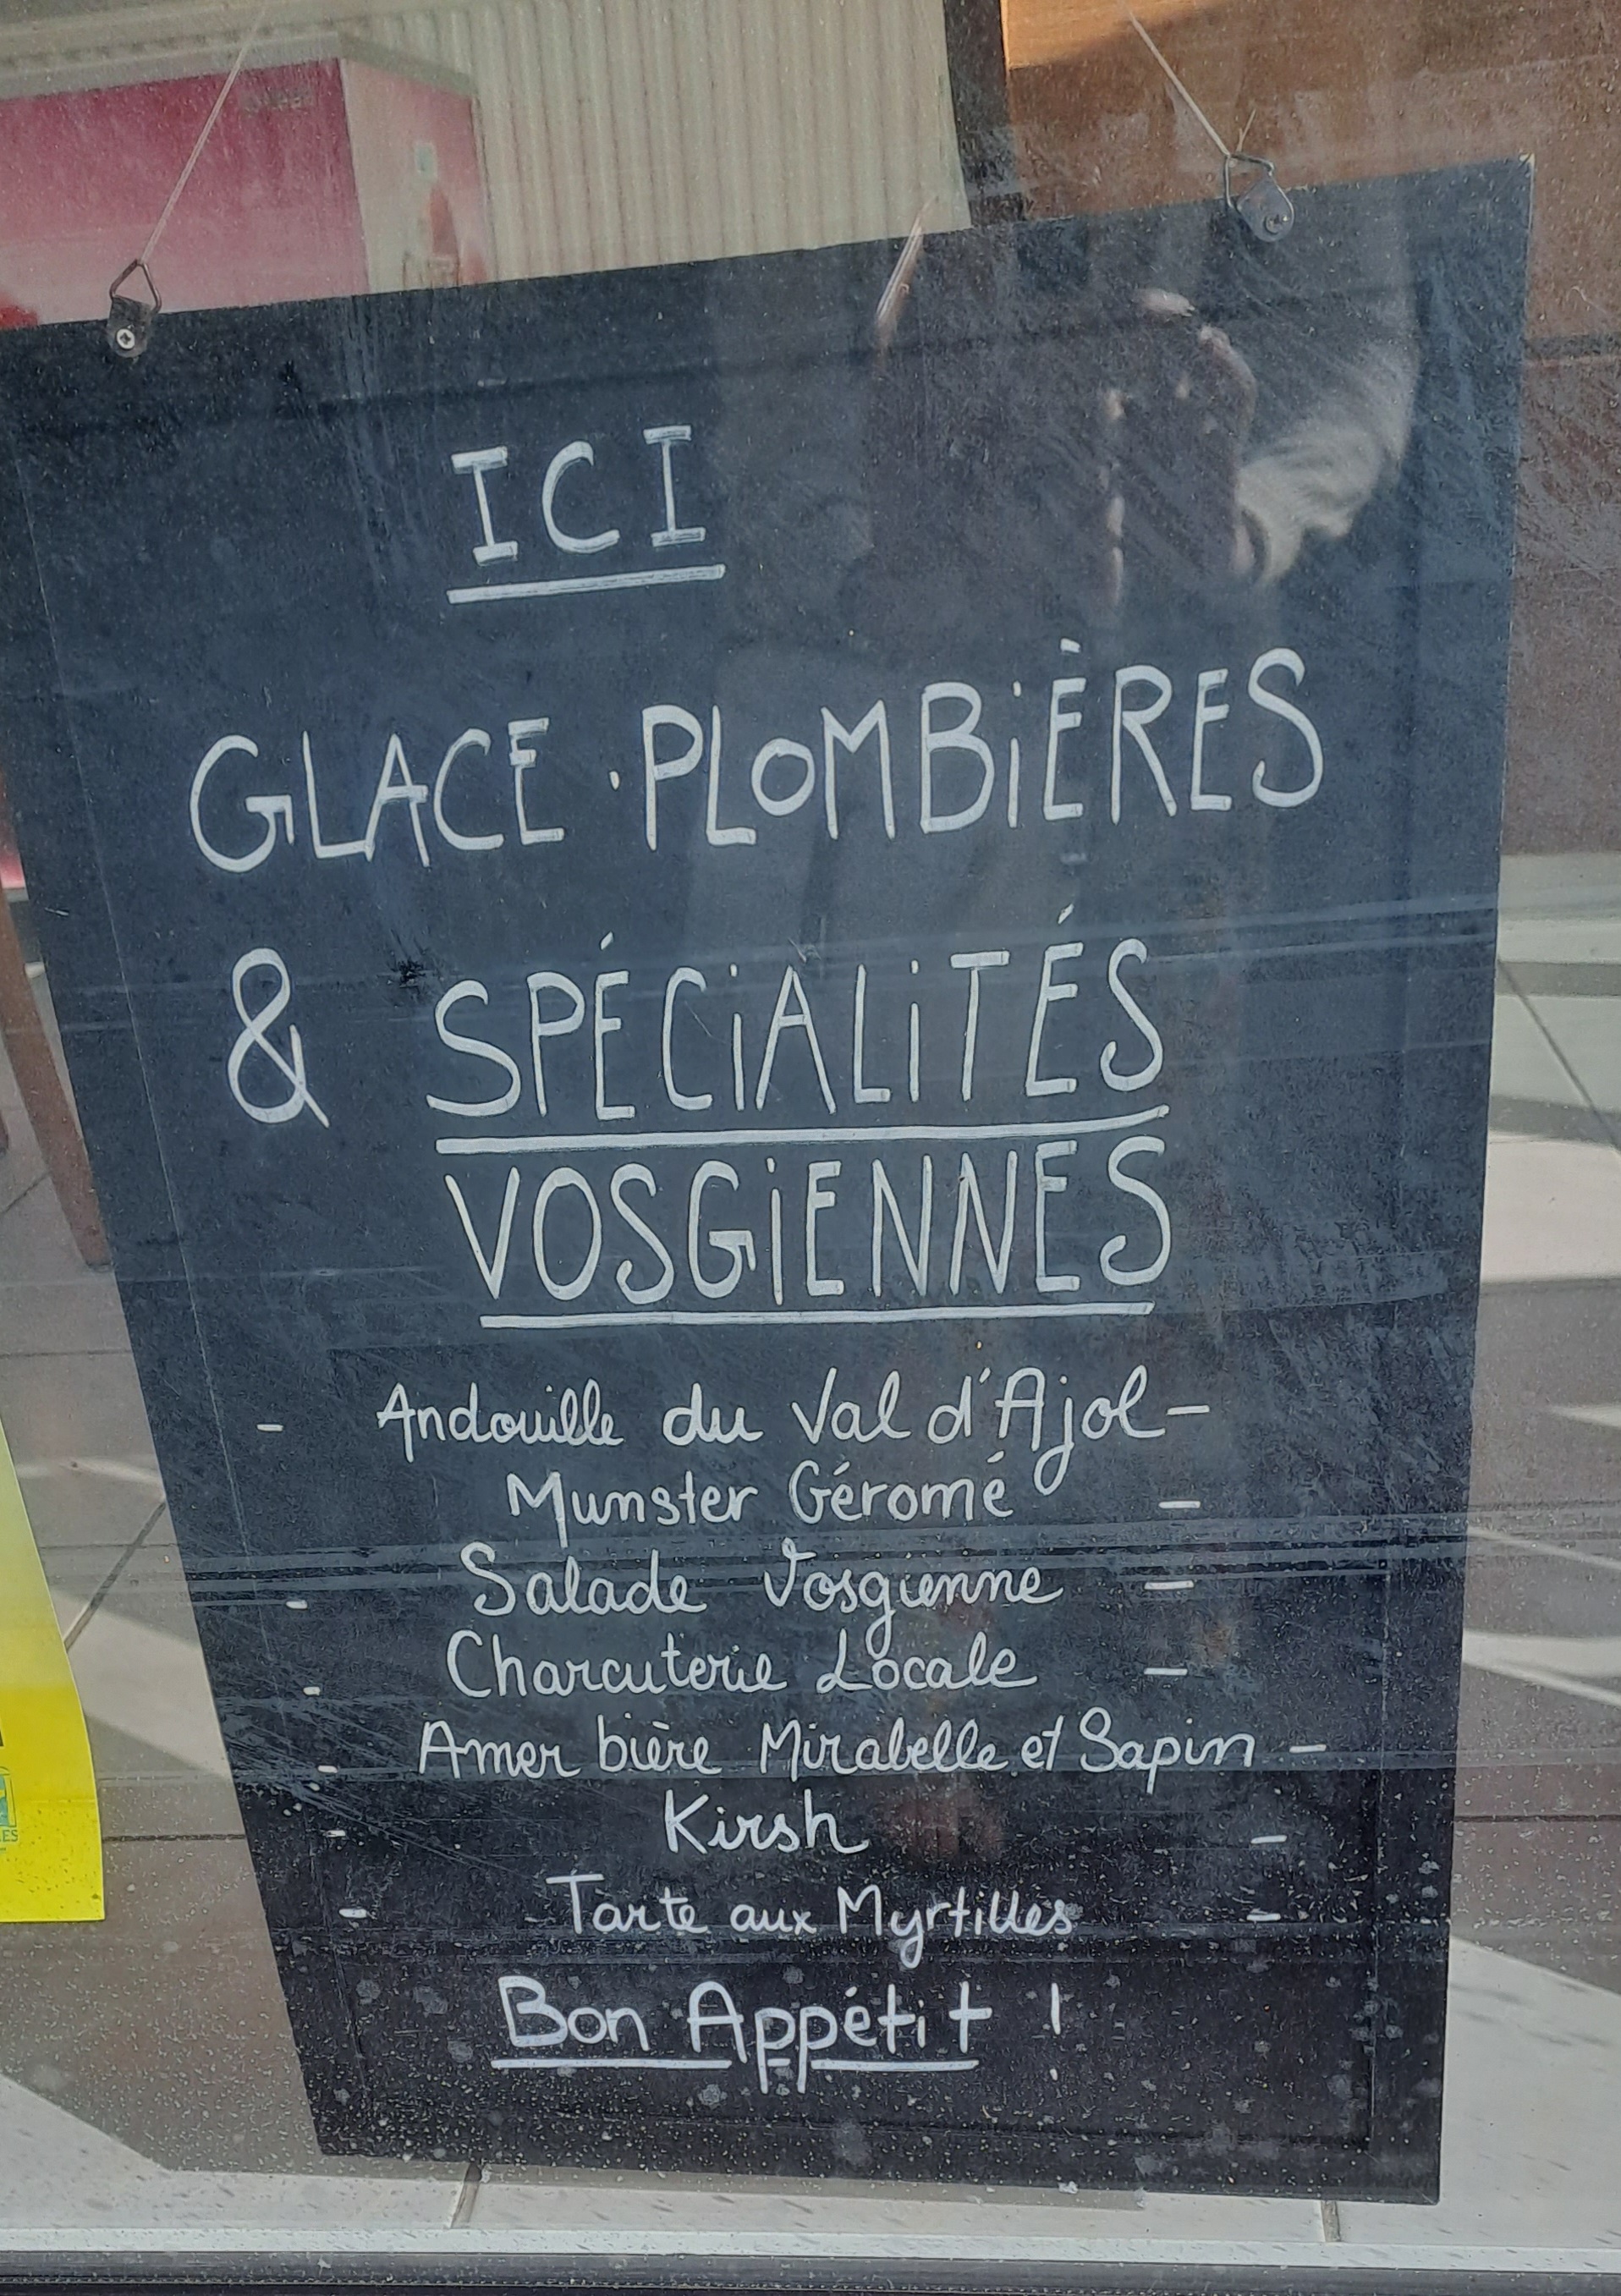 ICI
GLACE · PLOMBIÈRES
& SPÉCIALITÉS
VOSGIENNES
- Andouille du Val d'Ajol -
Munster Géromé -
- Salade Vosgienne -
- Charcuterie Locale -
- Amer bière Mirabelle et Sapin -
- Kirsh -
- Tarte aux Myrtilles -
Bon Appétit !